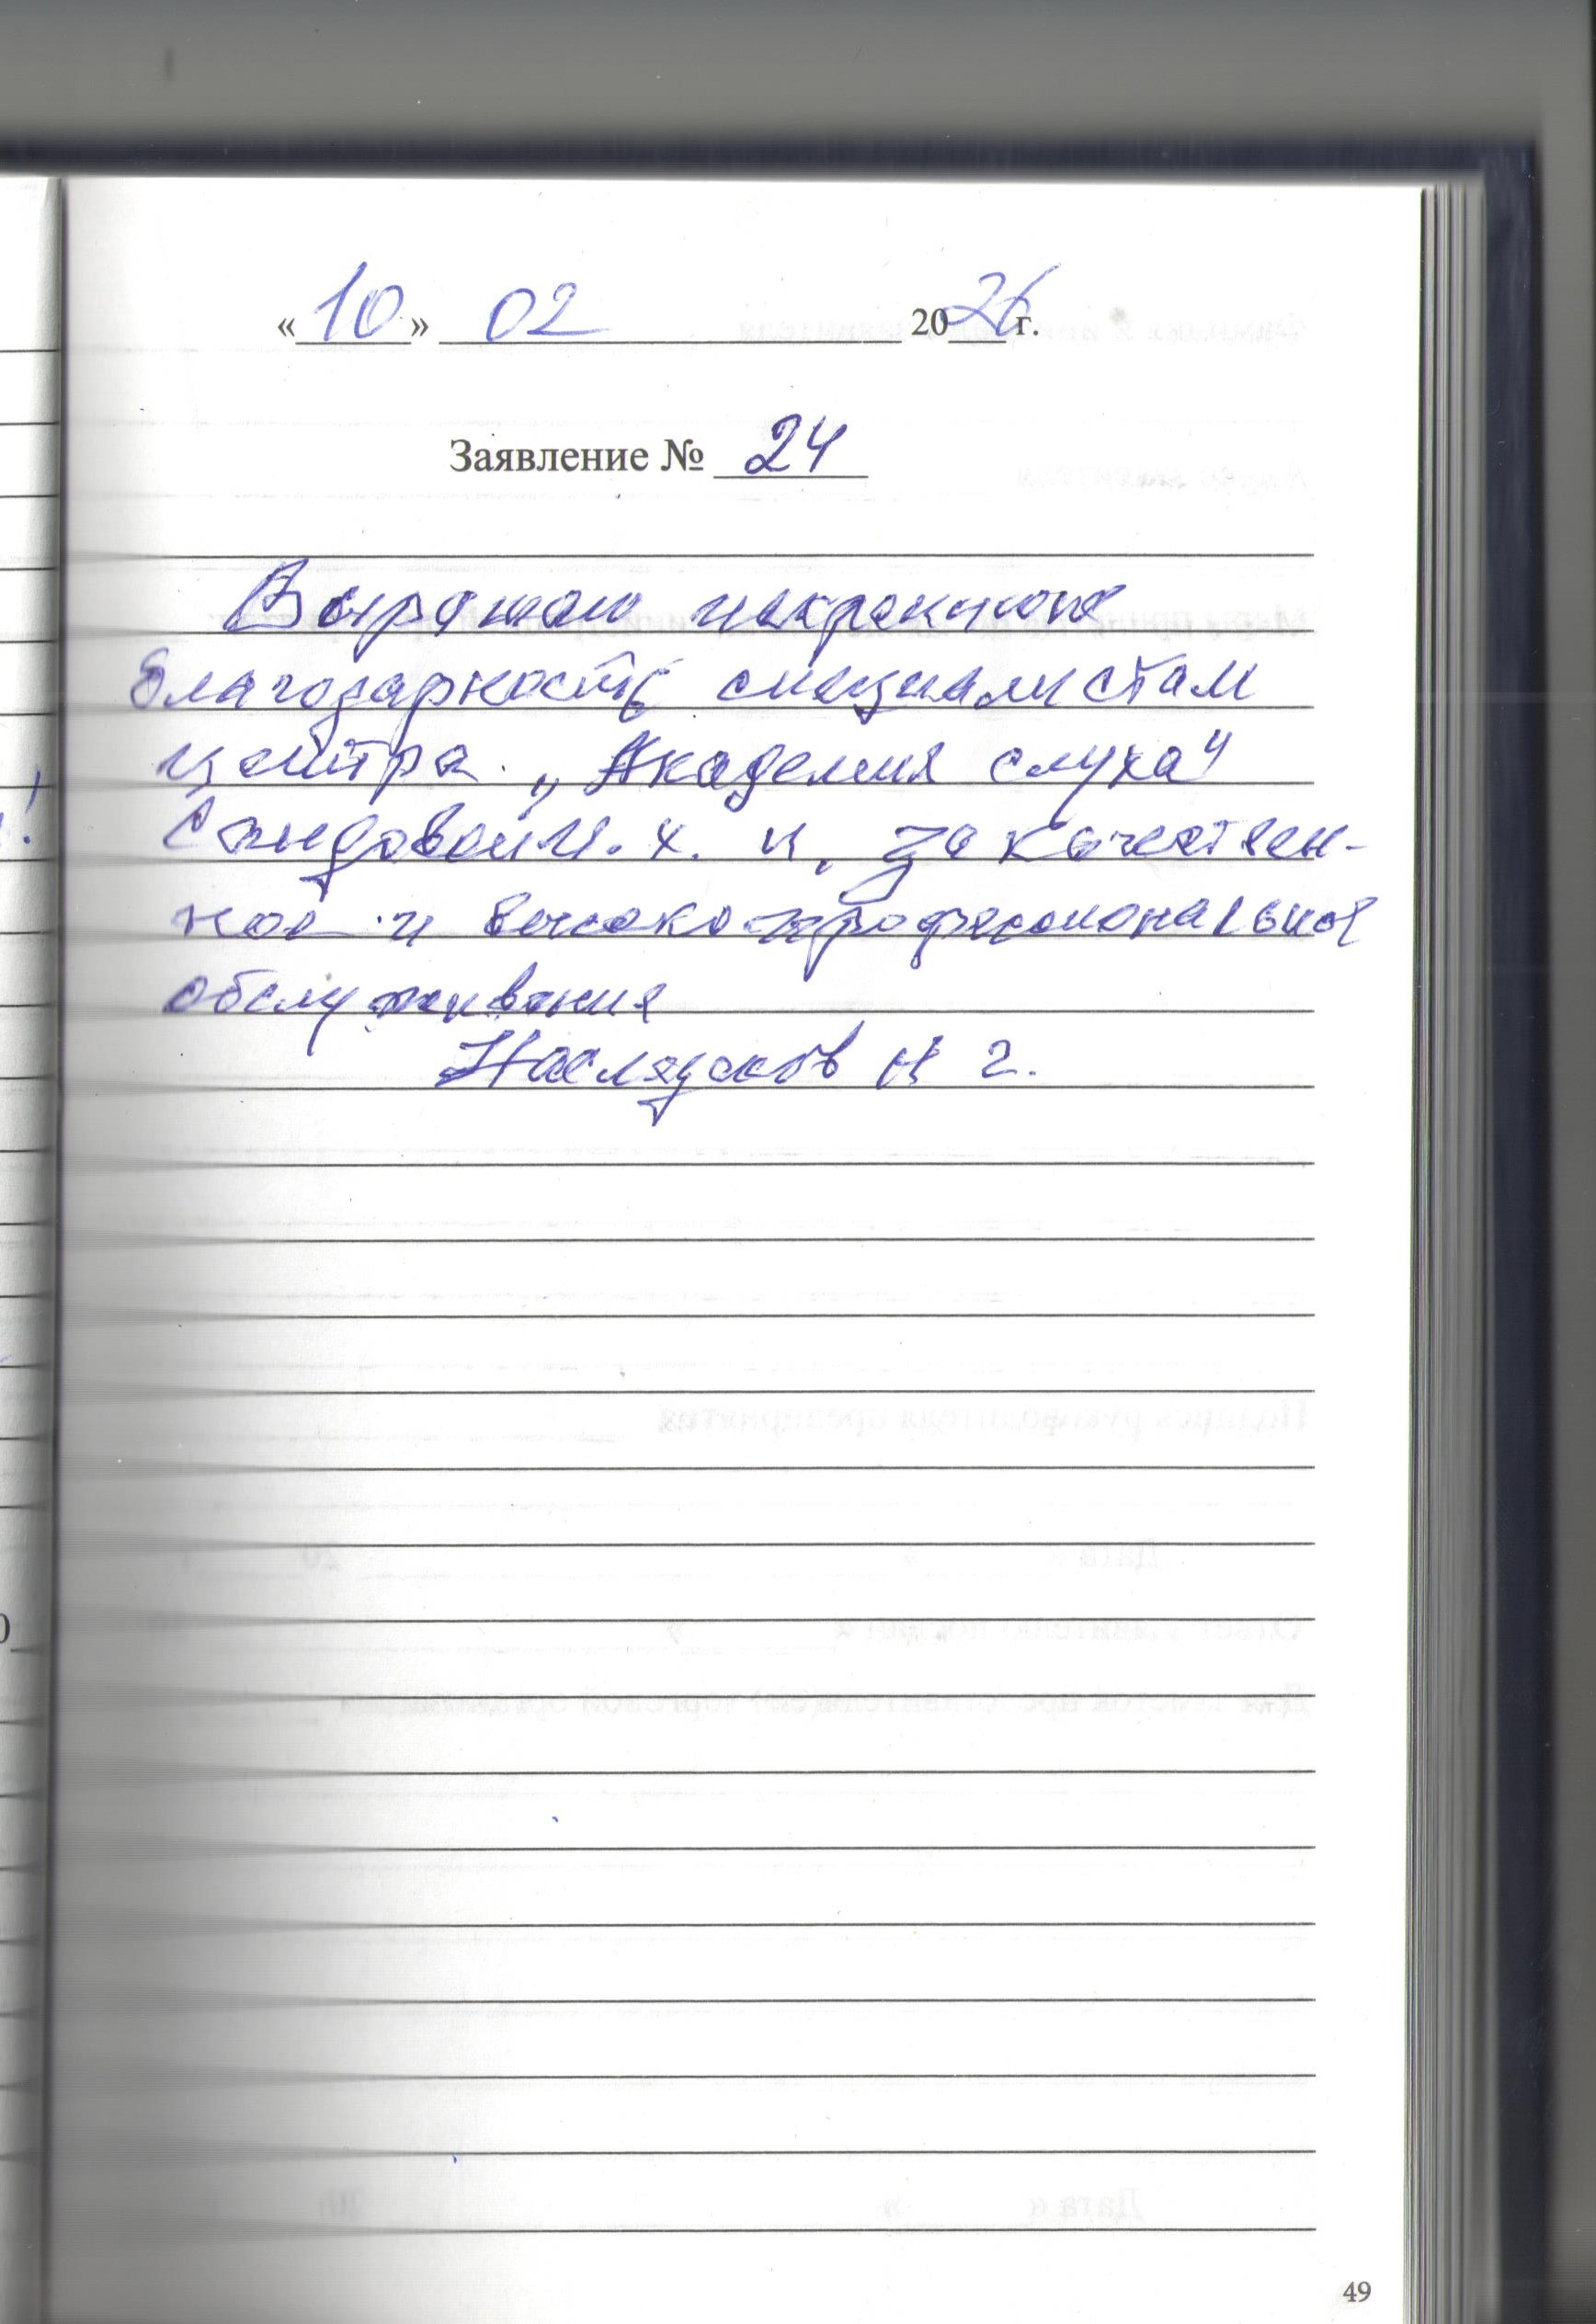 «10» 02 2026 г.
Заявление № 24
Выражаю искреннюю
благодарность специалистам
центра „Академия слуха"
и. за качествен-
ное и высокопрофессиональное
обслуживания
Н г.
49